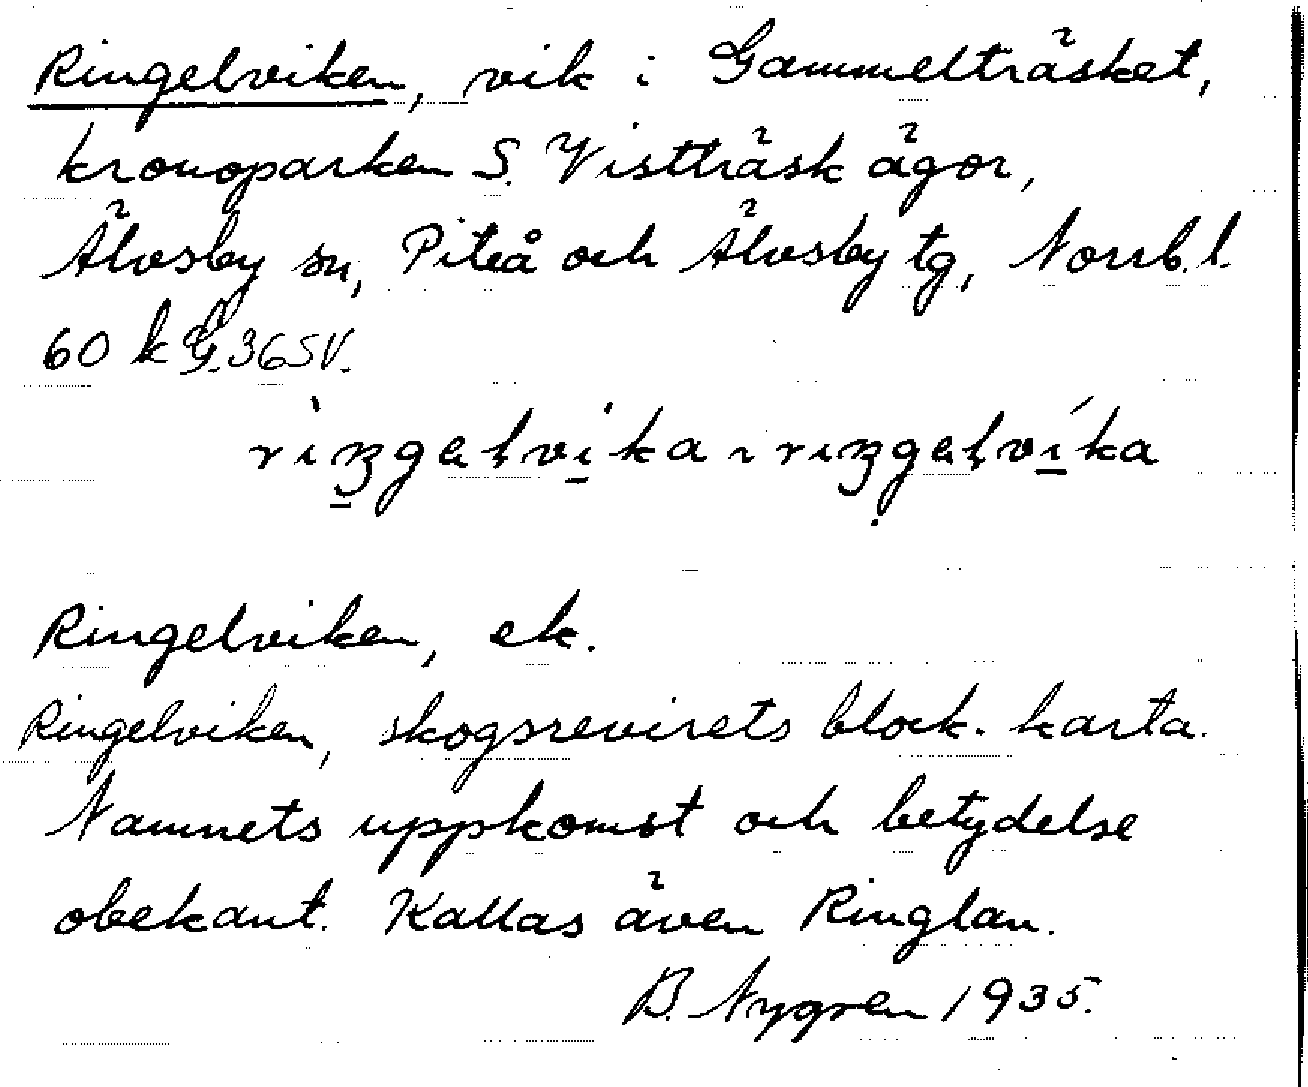 Ringelviken, vik i Gammelträsket,
kronoparken S. Vistträsk ägor,
Älvsby sn, Piteå och Älvsby tg, Norrb.l.
60 k G.36SV.
riŋgəlvika ~ riŋgəlvíka
Ringelviken, ek.
Ringelviken, skogsrevirets block. karta.
Namnets uppkomst och betydelse
obekant. Kallas även Ringlan.
B. Nygren 1935.